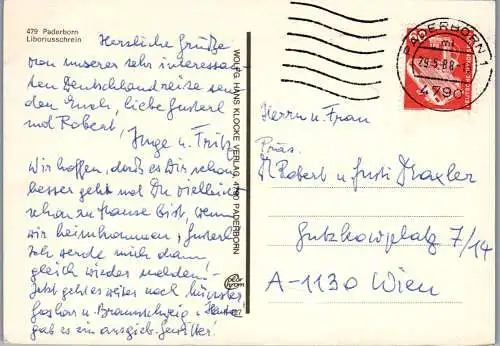 479 Paderborn
Liboriusschrein
Herzliche Grüße
von unserer sehr interessan-
ten Deutschlandreise sen-
den Euch, liebe Gusterl
und Robert,
Inge u. Fritz
Wir hoffen, daß es Dir schon
besser geht und Du vielleicht
schon zu Hause bist, wenn
wir heimkommen, Gusterl
Ich werde mich dann
gleich wieder melden! -
Jetzt geht es weiter nach Münster
Goslar u. Braunschweig. Heute
gab es ein ausgieb. Gewitter!
WOLFG. HANS KLOCKE VERLAG, 4790 PADERBORN
PADERBORN 1
29.5.88
4790
Herrn u. Frau
Präs.
Robert u. Gusti Draxler
Gutzkowplatz 7/14
A-1130 Wien